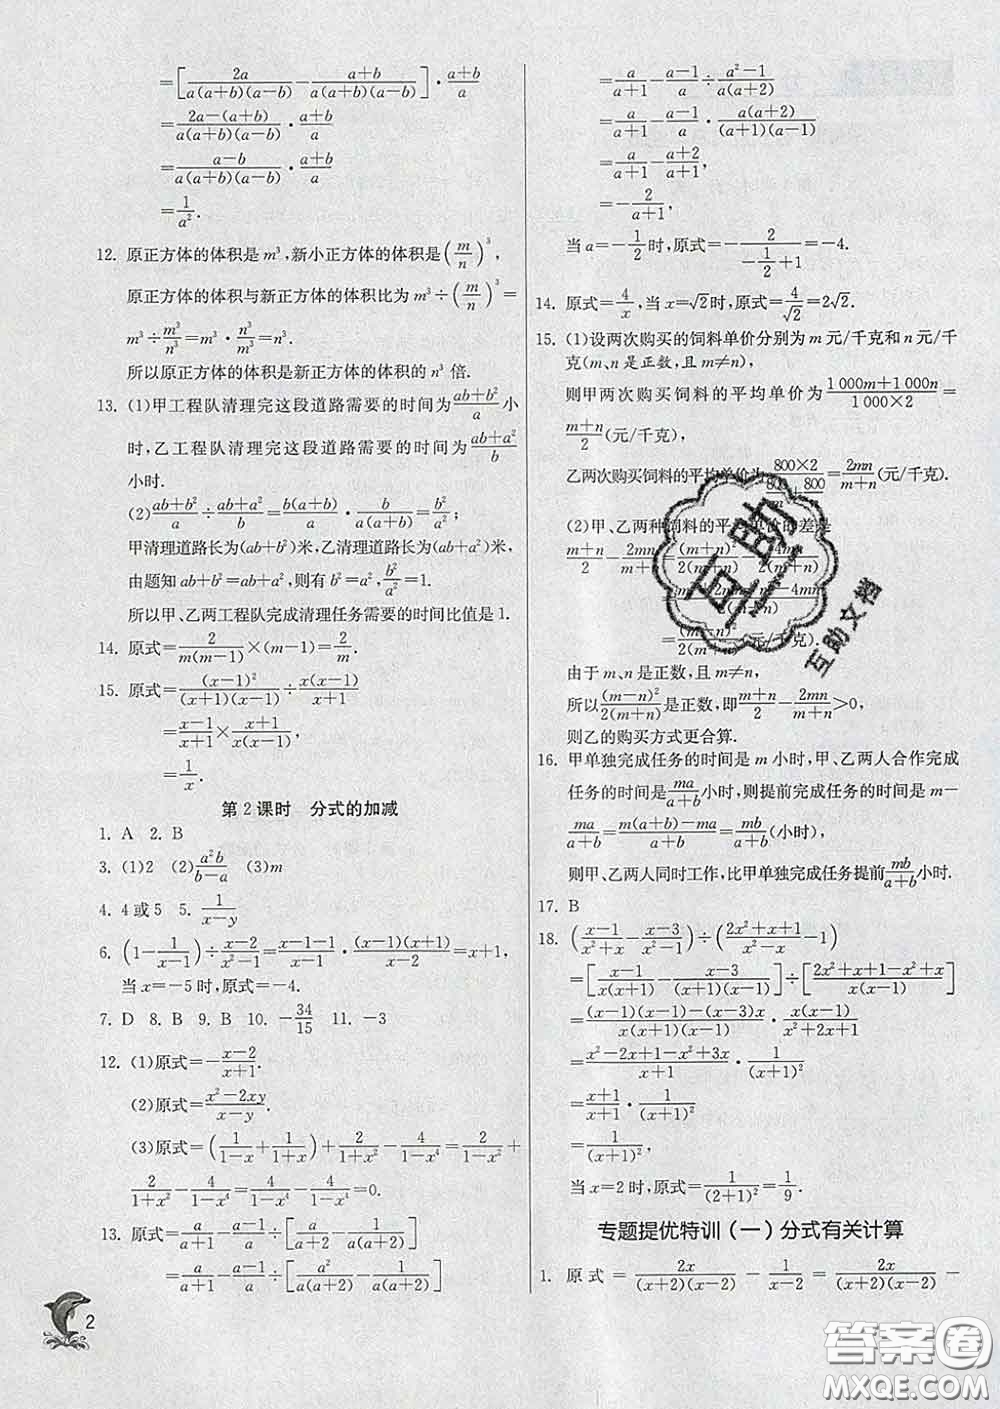 =[2a/(a(a+b)(a−b)) − (a+b)/(a(a+b)(a−b))]·(a+b)/a
=(2a−(a+b))/(a(a+b)(a−b))·(a+b)/a
=(a−b)/(a(a+b)(a−b))·(a+b)/a
=1/a².
12. 原正方体的体积是 m³,新小正方体的体积是(m/n)³,
原正方体的体积与新正方体的体积比为 m³÷(m/n)³=
m³÷m³/n³=m³·n³/m³=n³.
所以原正方体的体积是新正方体的体积的 n³ 倍.
13. (1)甲工程队清理完这段道路需要的时间为(ab+b²)/a 小
时,乙工程队清理完这段道路需要的时间为(ab+a²)/b
小时.
(2)(ab+b²)/a÷(ab+a²)/b=b(a+b)/a·b/(a(a+b))=b²/a²;
甲清理道路长为(ab+b²)米,乙清理道路长为(ab+a²)米,
由题知 ab+b²=ab+a²,则有 b²=a²,b²/a²=1.
所以甲、乙两工程队完成清理任务需要的时间比值是 1.
14. 原式=2/(m(m−1))×(m−1)=2/m.
15. 原式=(x−1)²/((x+1)(x−1))÷(x(x−1))/(x+1)
=(x−1)/(x+1)×(x+1)/(x(x−1))
=1/x.
第 2 课时 分式的加减
1. A 2. B
3. (1)2 (2)a²b/(b−a) (3)m
4. 4 或 5 5. 1/(x−y)
6. (1−1/(x−1))÷(x−2)/(x²−1)=(x−1−1)/(x−1)·((x−1)(x+1))/(x−2)=x+1,
当 x=−5 时,原式=−4.
7. D 8. B 9. B 10. −34/15 11. −3
12. (1)原式=−(x−2)/(x+1).
(2)原式=(x²−2xy)/(x−y).
(3)原式=(1/(1−x)+1/(1+x))+2/(1+x²)−4/(1−x⁴)=2/(1−x²)+
2/(1+x²)−4/(1−x⁴)=4/(1−x⁴)−4/(1−x⁴)=0.
13. 原式=a/(a+1)−(a−1)/a÷[a/(a+2)−1/(a(a+2))]
=a/(a+1)−(a−1)/a÷[a²/(a(a+2))−1/(a(a+2))]
2
=a/(a+1)−(a−1)/a÷(a²−1)/(a(a+2))
=a/(a+1)−(a−1)/a·(a(a+2))/((a+1)(a−1))
=a/(a+1)−(a+2)/(a+1),
=−2/(a+1),
当 a=−1/2 时,原式=−2/(−1/2+1)=−4.
14. 原式=4/x,当 x=√2 时,原式=4/√2=2√2.
15. (1)设两次购买的饲料单价分别为 m 元/千克和 n 元/千
克(m、n 是正数,且 m≠n),
则甲两次购买饲料的平均单价为(1 000m+1 000n)/(1 000×2)=
(m+n)/2(元/千克),
乙两次购买饲料的平均单价为(800×2)/(800/m+800/n)=2mn/(m+n)(元/千克).
(2)甲、乙两种饲料的平均单价的差是
(m+n)/2−2mn/(m+n)=(m+n)²/(2(m+n))−4mn/
(元/千克).
由于 m、n 是正数,且 m≠n,
所以(m−n)²/(2(m+n))是正数,即(m+n)/2−2mn/(m+n)>0,
则乙的购买方式更合算.
16. 甲单独完成任务的时间是 m 小时,甲、乙两人合作完成
任务的时间是 ma/(a+b)小时,则提前完成任务的时间是 m−
ma/(a+b)=(m(a+b)−ma)/(a+b)=mb/(a+b)(小时),
则甲、乙两人同时工作,比甲单独完成任务提前 mb/(a+b)小时.
17. B
18. ((x−1)/(x²+x)−(x−3)/(x²−1))÷((2x²+x+1)/(x²−x)−1)
=[(x−1)/(x(x+1))−(x−3)/((x+1)(x−1))]÷[(2x²+x+1−x²+x)/(x(x−1))]
=((x−1)(x−1)−(x−3)x)/(x(x+1)(x−1))·(x(x−1))/(x²+2x+1)
=(x²−2x+1−x²+3x)/(x+1)·1/(x+1)²
=(x+1)/(x+1)·1/(x+1)²
=1/(x+1)²,
当 x=2 时,原式=1/(2+1)²=1/9.
专题提优特训(一)分式有关计算
1. 原式=2x/((x+2)(x−2))−1/(x−2)=2x/((x+2)(x−2))−
互助
互助文档
答案圈
MXQE.COM